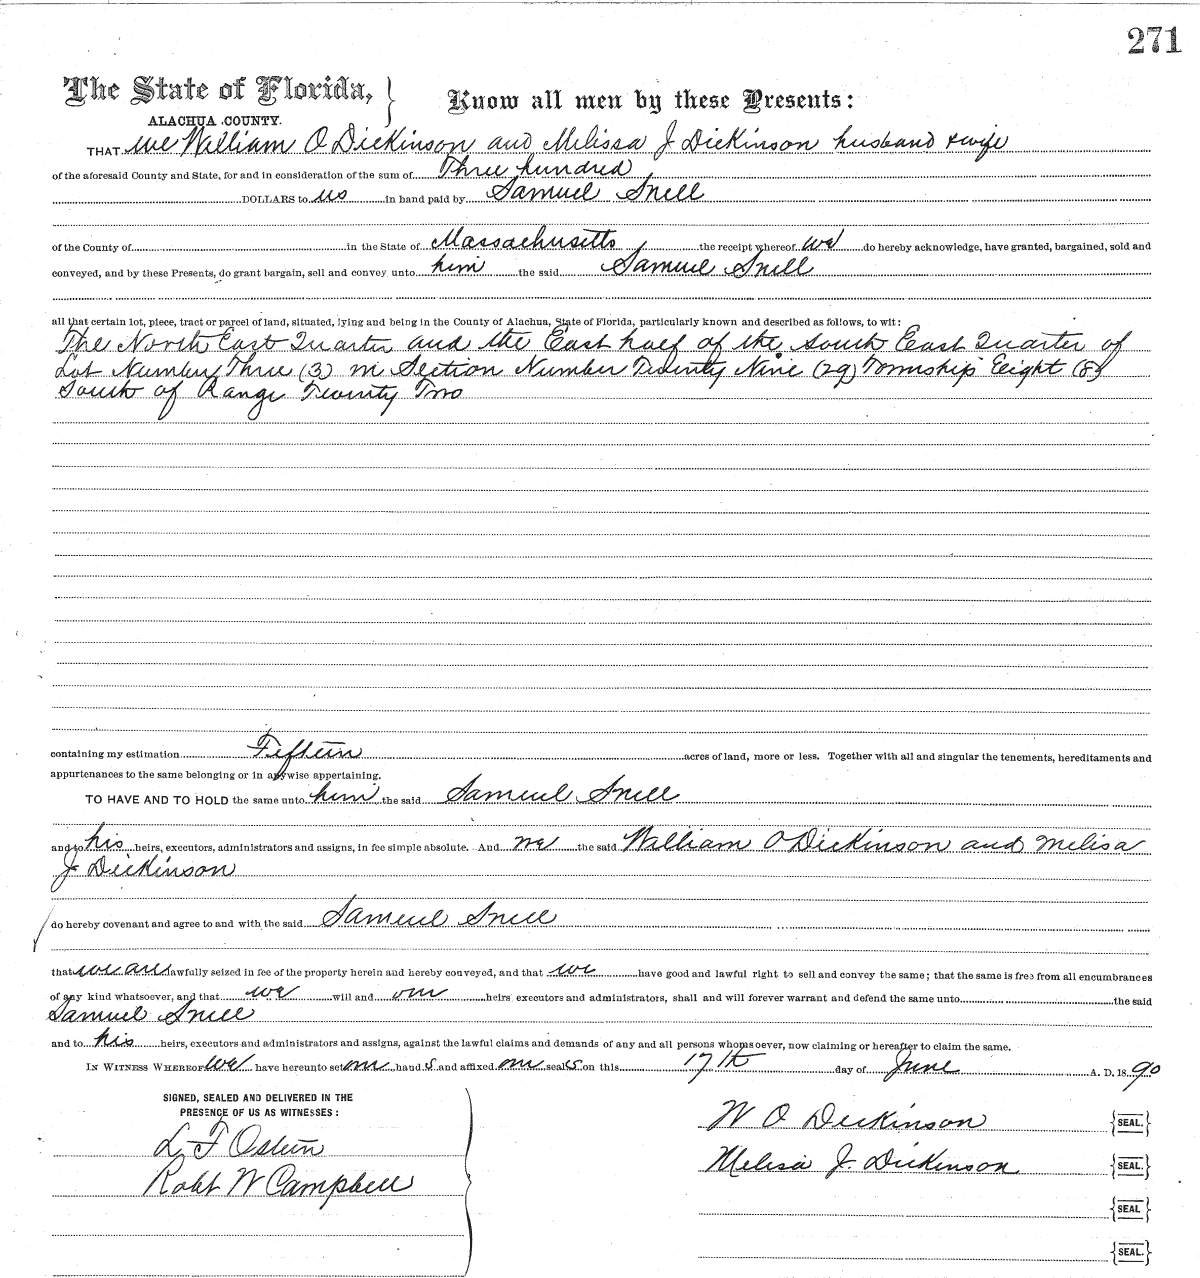 271
The State of Florida, }
ALACHUA COUNTY.
Know all men by these Presents:
THAT we William O Dickinson and Melissa J Dickinson husband & wife
of the aforesaid County and State, for and in consideration of the sum of Three hundred
DOLLARS to us in hand paid by Samuel Snell
of the County of in the State of Massachusetts the receipt whereof we do hereby acknowledge, have granted, bargained, sold and
conveyed, and by these Presents, do grant bargain, sell and convey unto him the said Samuel Snell
all that certain lot, piece, tract or parcel of land, situated, lying and being in the County of Alachua, State of Florida, particularly known and described as follows, to wit:
The North East Quarter and the East half of the South East Quarter of
Lot Number Three (3) in Section Number Twenty Nine (29) Township Eight (8)
South of Range Twenty Two
containing my estimation Fifteen acres of land, more or less. Together with all and singular the tenements, hereditaments and
appurtenances to the same belonging or in anywise appertaining.
TO HAVE AND TO HOLD the same unto him the said Samuel Snell
and to his heirs, executors, administrators and assigns, in fee simple absolute. And we the said William O Dickinson and Melisa
J Dickinson
do hereby covenant and agree to and with the said Samuel Snell
that we are lawfully seized in fee of the property herein and hereby conveyed, and that we have good and lawful right to sell and convey the same; that the same is free from all encumbrances
of any kind whatsoever, and that we will and our heirs executors and administrators, shall and will forever warrant and defend the same unto the said
Samuel Snell
and to his heirs, executors and administrators and assigns, against the lawful claims and demands of any and all persons whomsoever, now claiming or hereafter to claim the same.
IN WITNESS WHEREOF we have hereunto set our hand s and affixed our seal s on this 17th day of June A. D. 18 90
SIGNED, SEALED AND DELIVERED IN THE
PRESENCE OF US AS WITNESSES:
L F Osteen
Robt W Campbell
W O Dickinson {SEAL.}
Melisa J. Dickinson {SEAL.}
{SEAL}
{SEAL.}